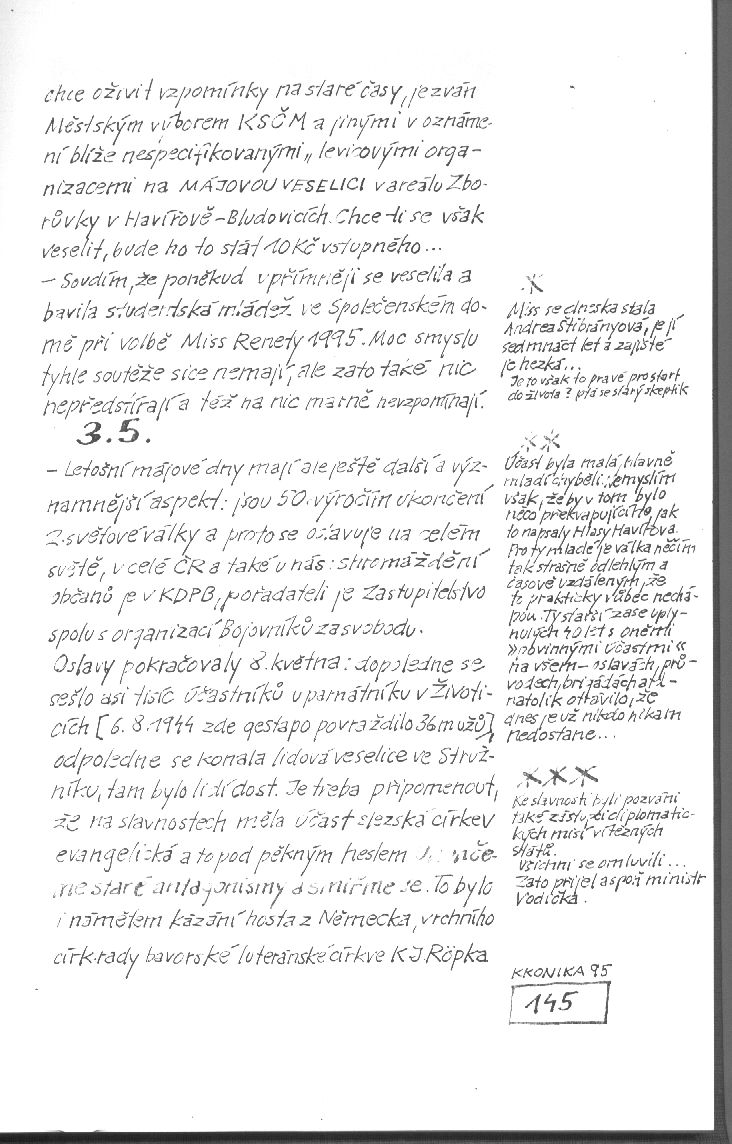 chce oživit vzpomínky na staré časy, je zván
Městským výborem KSČM a jinými v oznáme-
ní blíže nespecifikovanými „levicovými orga-
nizacemi na MÁJOVOU VESELICI v areálu Zbo-
růvky v Havířově-Bludovicích. Chce-li se však
veselit, bude ho to stát 10 Kč vstupného...
- Soudím, že poněkud upřímněji se veselila a
bavila studentská mládež ve Společenském do-
mě při volbě Miss Renety 1995. Moc smyslu
tyhle soutěže sice nemají, ale zato také nic
nepředstírají a též na nic marně nevzpomínají.
3.5.
- Letošní májové dny mají ale ještě další a výz-
namnější aspekt: jsou 50. výročím ukončení
2. světové války a proto se oslavuje na celém
světě, v celé ČR a také u nás: shromáždění
občanů je v KDPB, pořadateli je Zastupitelstvo
spolu s organizací Bojovníků za svobodu.
Oslavy pokračovaly 8. května: dopoledne se
sešlo asi tisíc účastníků u památníku v Životi-
cích [6.8.1944 zde gestapo povraždilo 36 mužů],
odpoledne se konala lidová veselice ve Struž-
níku, tam bylo lidí dost. Je třeba připomenout,
že na slavnostech měla účast slezská církev
evangelická a to pod pěkným heslem
staré antagonismy a smiřme se. To bylo
i námětem kázání hosta z Německa, vrchního
círk. rady bavorské luteránské církve K.J. Röpka
*
Miss se dneska stala
Andrea Štibrányová, je jí
sedmnáct let a zajisté
je hezká...
Je to však to pravé pro start
do života? ptá se starý skeptik
**
Účast byla malá, hlavně
mladí chyběli. Nemyslím
však, že by v tom bylo
něco překvapujícího, jak
to napsaly Hlasy Havířova.
Pro ty mladé je válka něčím
tak strašně odlehlým a
časově vzdáleným, že
to prakticky vůbec nechá-
pou. Ty starší zase uply-
nulých 40 let s oněmi
»povinnými účastmi«
na všem - oslavách, prů-
vodech, brigádách atd -
natolik otrávilo, že
dnes je už nikdo nikam
nedostane...
***
Ke slavnosti byli pozváni
také zástupci diplomatic-
kých misí vítězných
států.
Všichni se omluvili...
Zato přijel aspoň ministr
Vodička.
KRONIKA 95
145